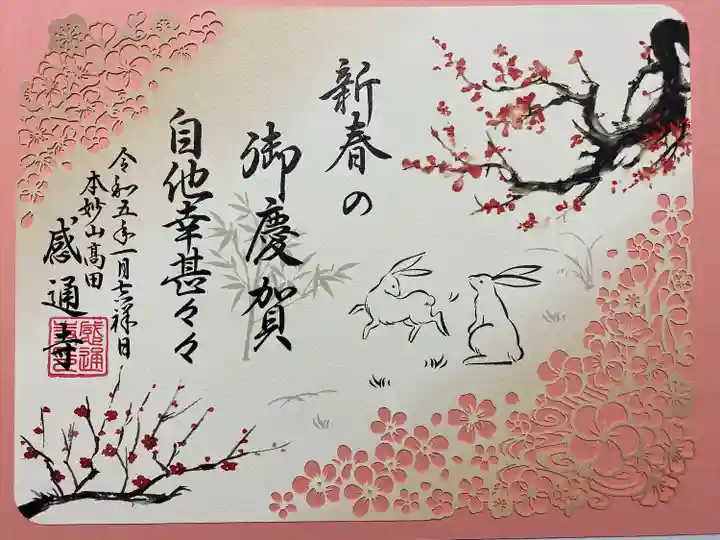 新春の
御慶賀
自他幸甚々々
令和五年一月吉祥日
本妙山高田
感通寺
感通寺